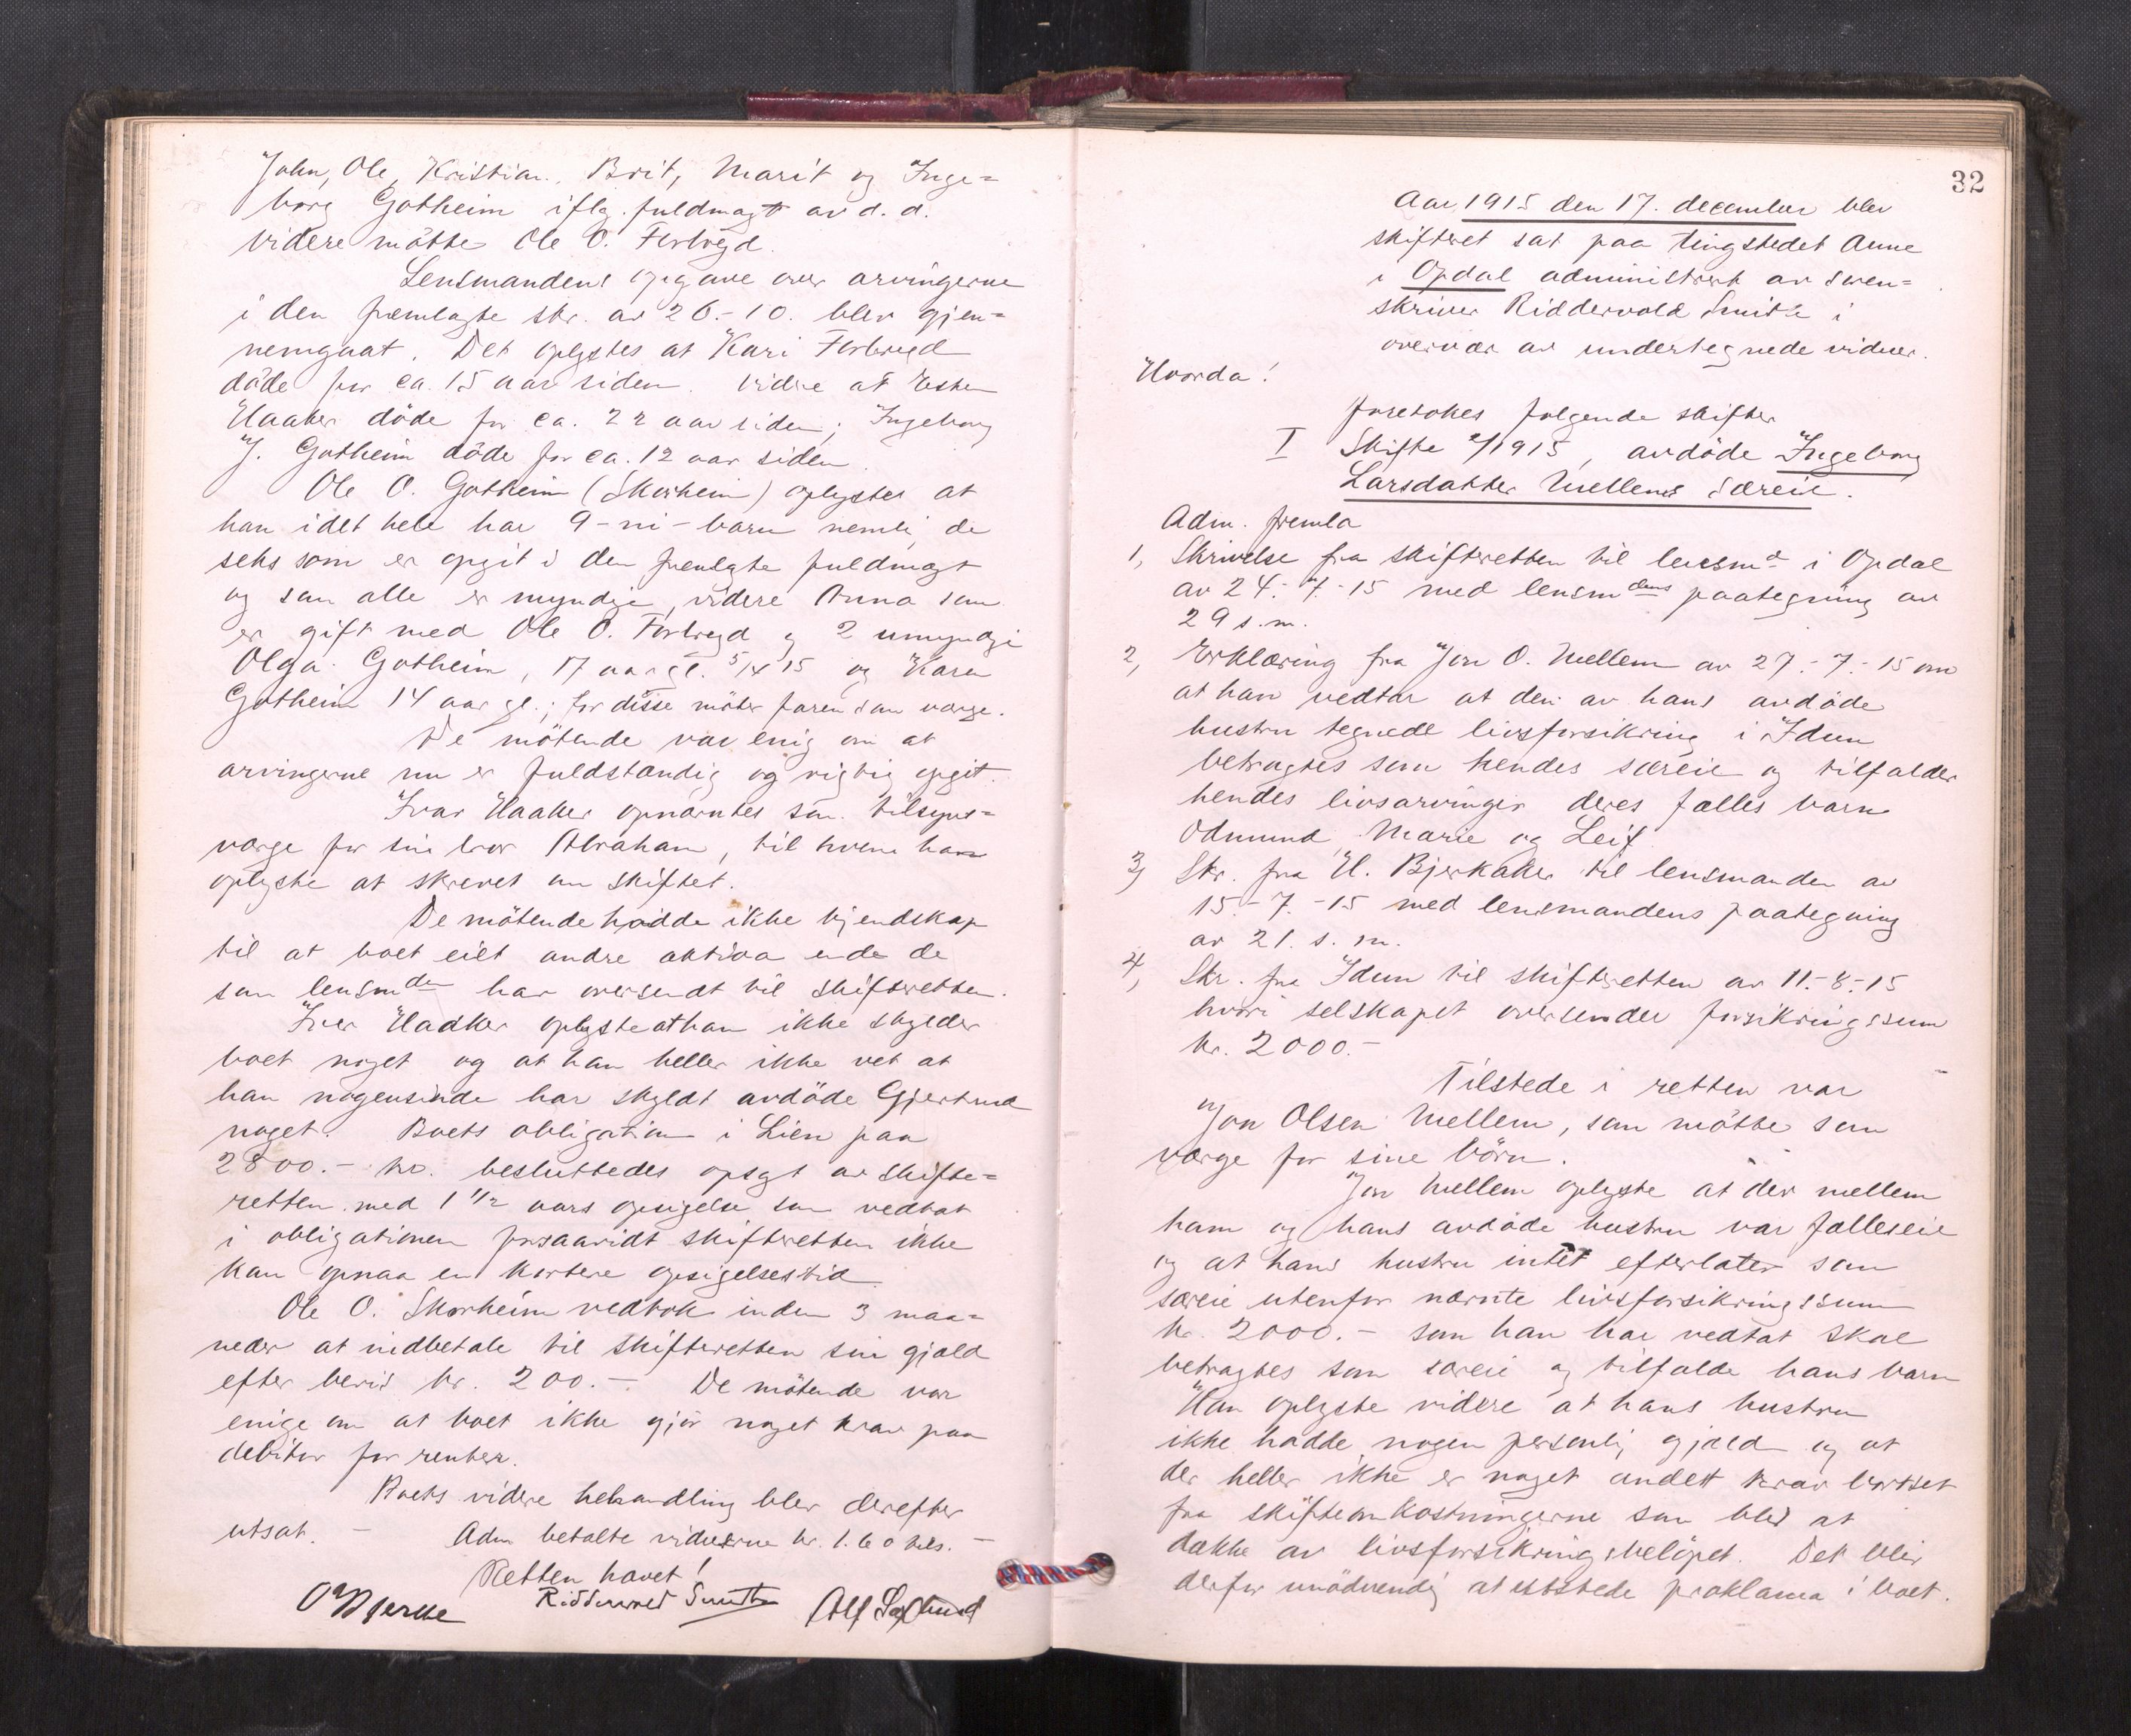 John, Ole, Kristian, Brit, Marit og Inge=
borg Gotheim iflg. fuldmagt av d. d.
Videre møtte Ole O. Forbregd.
Lensmandens opgave over arvingerne
i den fremlagte skr. av 26.-10. blev gjen=
nemgaat. Det oplystes at Kari Forbregd
döde for ca. 15 aar siden. Videre at Esten
Haaker döde for ca. 22 aar siden; Ingeborg
J. Gotheim döde for ca. 12 aar siden.
Ole O. Gotheim (Skorheim) oplyster at
han i det hele har 9 - ni - barn nemlig de
seks som er opgit i den fremlagte fuldmagt
og som alle er myndige, videre Anna som
er gift med Ole O. Forbregd og 2 umyndige
Olga Gotheim, 17 aar gl. 5/4 15 og Karen
Gotheim 14 aar gl.; for disse möter faren som verge.
De mötende var enig om at
arvingerne nu er fuldstændig og rigtig opgit.
Ivar Haaker opnævntes som tilsyns=
verge for sin bror Abraham, til hvem han
oplyste at skrevet om skiftet.
De mötende hadde ikke kjendskap
til at boet eiet andre aktiva ende de
som lensmden har oversendt til skifteretten.
Iver Haaker oplyste at han ikke skylder
boet noget og at han heller ikke vet at
han nogensinde har skyldt avdöde Gjertrud
noget. Boets obligation i Lien paa
2800.- kr. besluttedes opsagt av skifte=
retten med 1 1/2 aars opsigelse som vedtat
i obligationen forsaavidt skifteretten ikke
kan opnaa en kortere opsigelsestid.
Ole O. Skorheim vedtok inden 3 maa=
neder at indbetale til skifteretten sin gjæld
efter bevis kr. 200.-. De mötende var
enige om at boet ikke gjör noget krav paa
debitor for renter.
Boets videre behandling blev derefter
utsat. - Adm betalte vidnerne kr. 1.60 tils. -
Retten hævet!
O Bjerke Ridderwold Smith Alf
32
Aar 1915 den 17. december blev
skifteret sat paa tingstedet Aune
i Opdal administrert av soren=
skriver Riddervold Smith i
overvær av undertegnede vidner.
Hvorda!
foretokes følgende skifter
I Skifte /1915, avdöde Ingeborg
Larsdatter Mellems særeie.
Adm. fremla
1, Skrivelse fra skifteretten til lensmd i Opdal
av 24.-7.-15 med lensmdens paategning av
29 s.m.
2, Erklæring fra Jon O. Mellem av 27.-7.-15 om
at han vedtar at den av hans avdöde
hustru tegnede livsforsikring i Idun
betragtes som hendes særeie og tilfalder
hendes livsarvinger deres fælles barn
Odmund, Marie og Leif
3, Skr. fra H. Bjerkaker til lensmanden av
15.-7.-15 med lensmandens paategning
av 21. s. m.
4, Skr. fra Idun til skifteretten av 11.-8.-15
hvori selskapet oversender forsikringssum
kr. 2000.-
Tilstede i retten var
Jon Olsen Mellem, som mötte som
værge for sine börn.
Jon Mellem oplyste at der mellem
ham og hans avdöde hustru var fælleseie
og at hans hustru intet efterlater som
særeie utenfor nævnte livsforsikringssum
kr. 2000.- som han har vedtat skal
betragtes som særeie og tilfalde hans barn
Han oplyste videre at hans hustru
ikke hadde nogen personlig gjæld og at
der heller ikke er noget andett krav bortset
fra skifteomkostningerne som blir at
dække av livsforsikringsbelöpet. Det blir
derfor unödvendig at utstede proklama i boet.